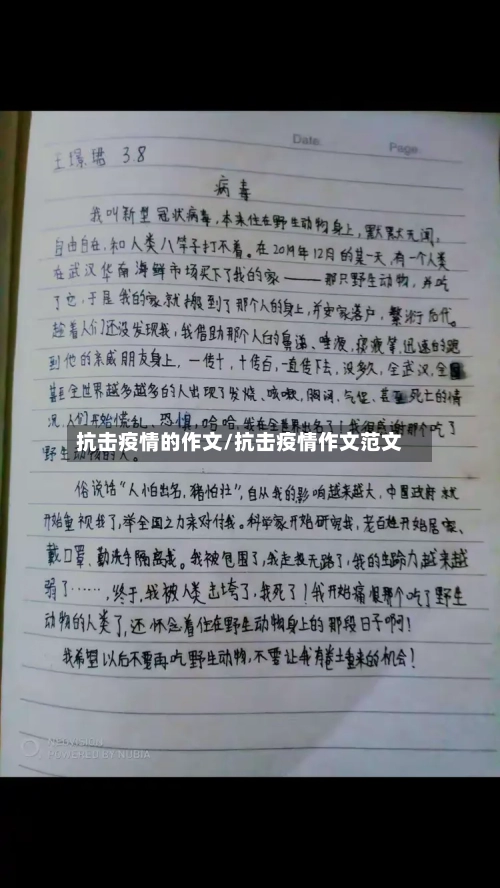 Date
Page
王璟珺 3.8
病毒
我叫新型冠状病毒，本来住在野生动物身上，默默无闻，
自由自在，和人类八竿子打不着。在2019年12月的某一天，有一个人类
在武汉华南海鲜市场买下了我的家——那只野生动物，并吃
了它，于是我的家就搬到了那个人的身上，并安家落户，繁衍后代。
趁着人们还没发现我，我借助那个人的鼻涕、唾液、痰液等，迅速的跑
到他的亲戚朋友身上，一传十，十传百，一直传下去，没多久，全武汉，全国
甚至全世界越多越多的人出现了发烧、咳嗽，胸闷、气促、甚至死亡的情
况，人们开始慌乱、恐惧，哈哈，我在全世界出名了！我很感谢那个吃了
抗击疫情的作文/抗击疫情作文范文
野生动物的人。
俗说话“人怕出名，猪怕壮”，自从我的影响越来越大，中国政府就
开始重视我了，举全国之力来对付我。科学家开始研究我，老百姓开始居家、
戴口罩、勤洗手隔离我。我被包围了，我走投无路了，我的生命力越来越
弱了……，终于，我被人类击垮了，我死了！我开始痛恨那个吃了野生
动物的人类了，还怀念着住在野生动物身上的那段日子啊！
我希望以后不要再吃野生动物，不要让我有卷土重来的机会！
POWERED BY NUBIA